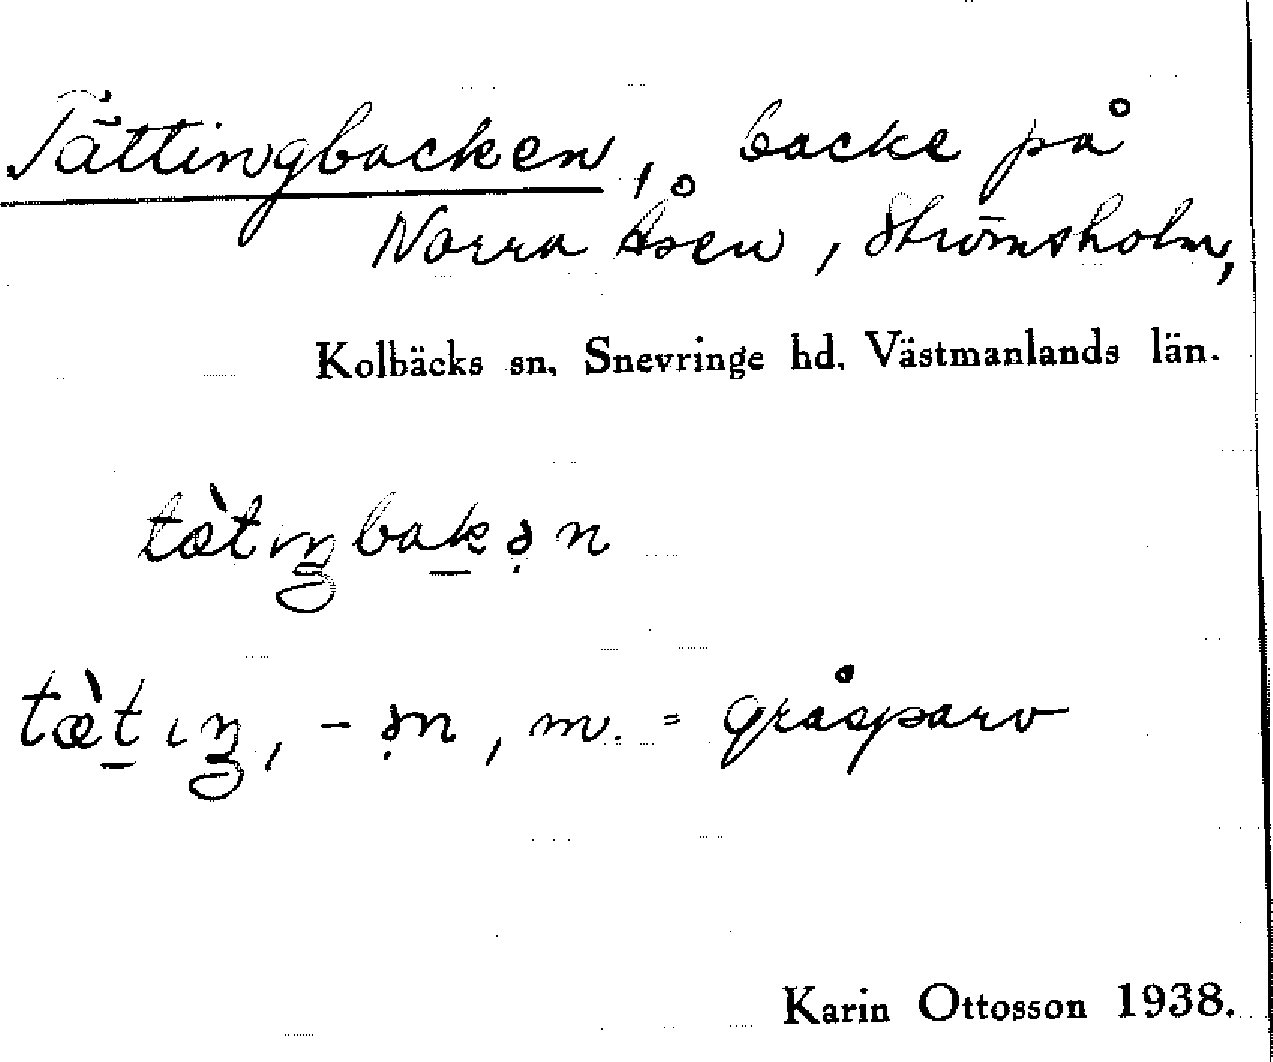 Tättingbacken, backe på
Norra Åsen, Strömsholm,
Kolbäcks sn. Snevringe hd. Västmanlands län.
tæ̀tıŋbak̲ə̣n
tæ̀t̲ıŋ, -ə̣n, m. = gråsparv
Karin Ottosson 1938.